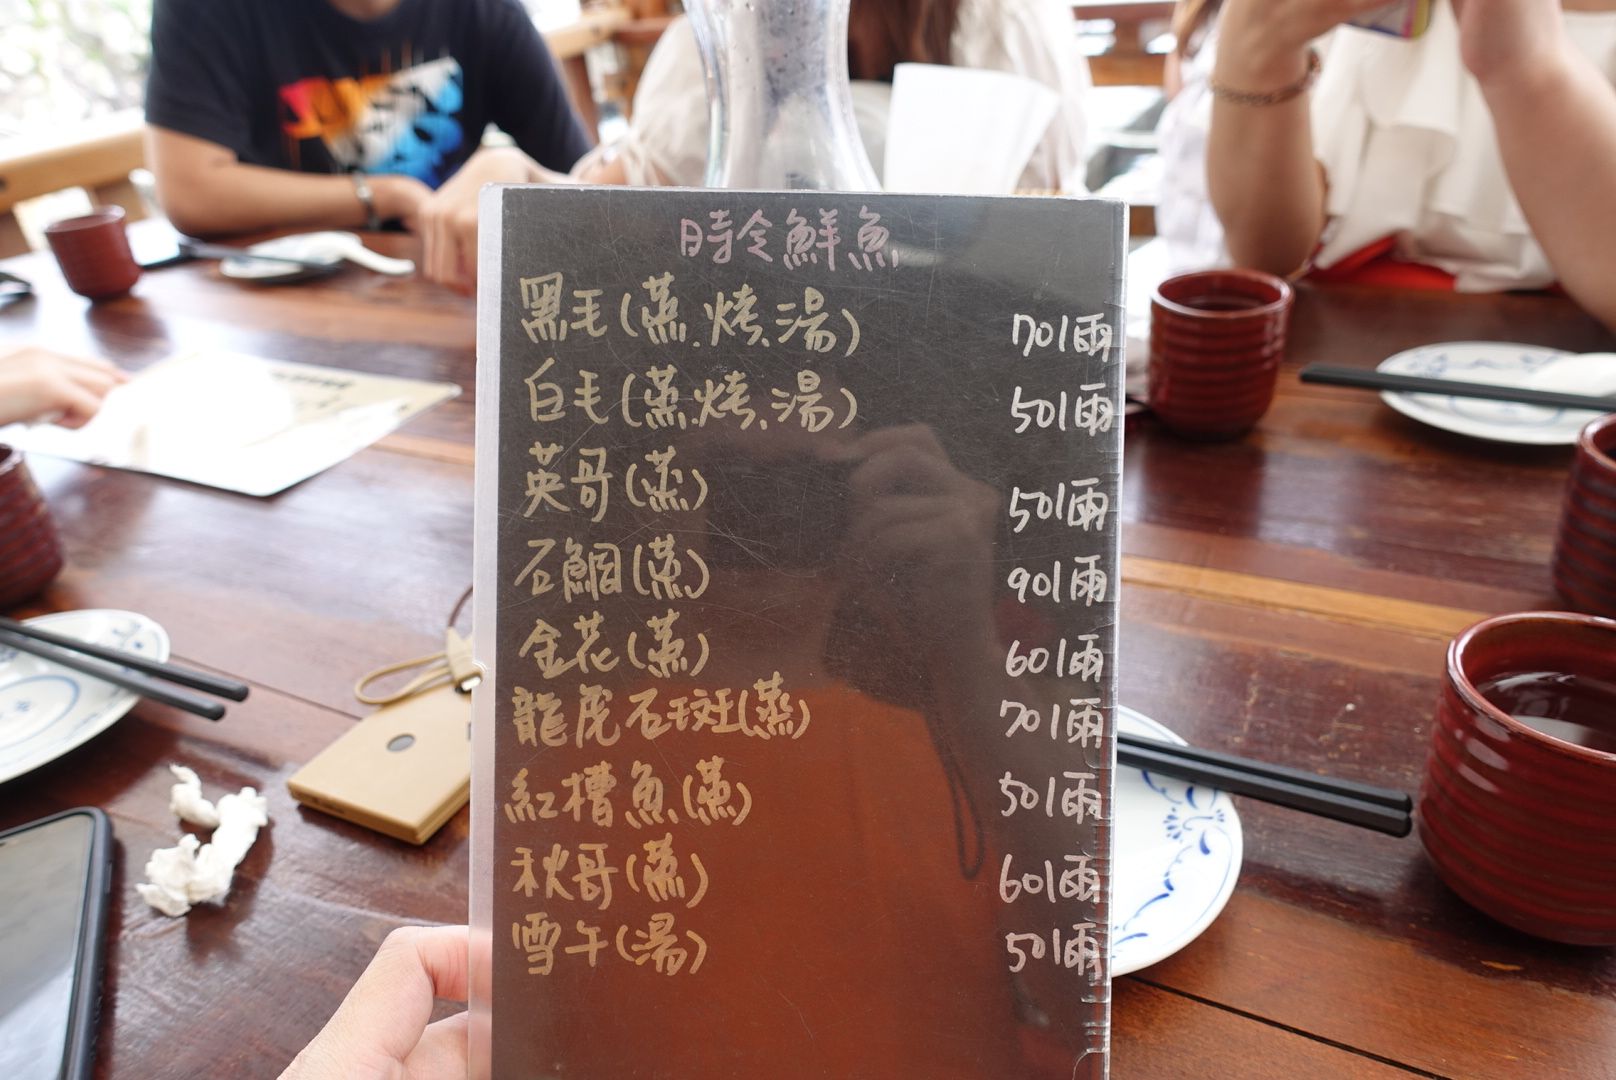 時令鮮魚
黑毛(蒸.烤.湯) 70/兩
白毛(蒸.烤.湯) 50/兩
英哥(蒸) 50/兩
石鯛(蒸) 90/兩
金花(蒸) 60/兩
龍虎石斑(蒸) 70/兩
紅槽魚(蒸) 50/兩
秋哥(蒸) 60/兩
雪午(湯) 50/兩